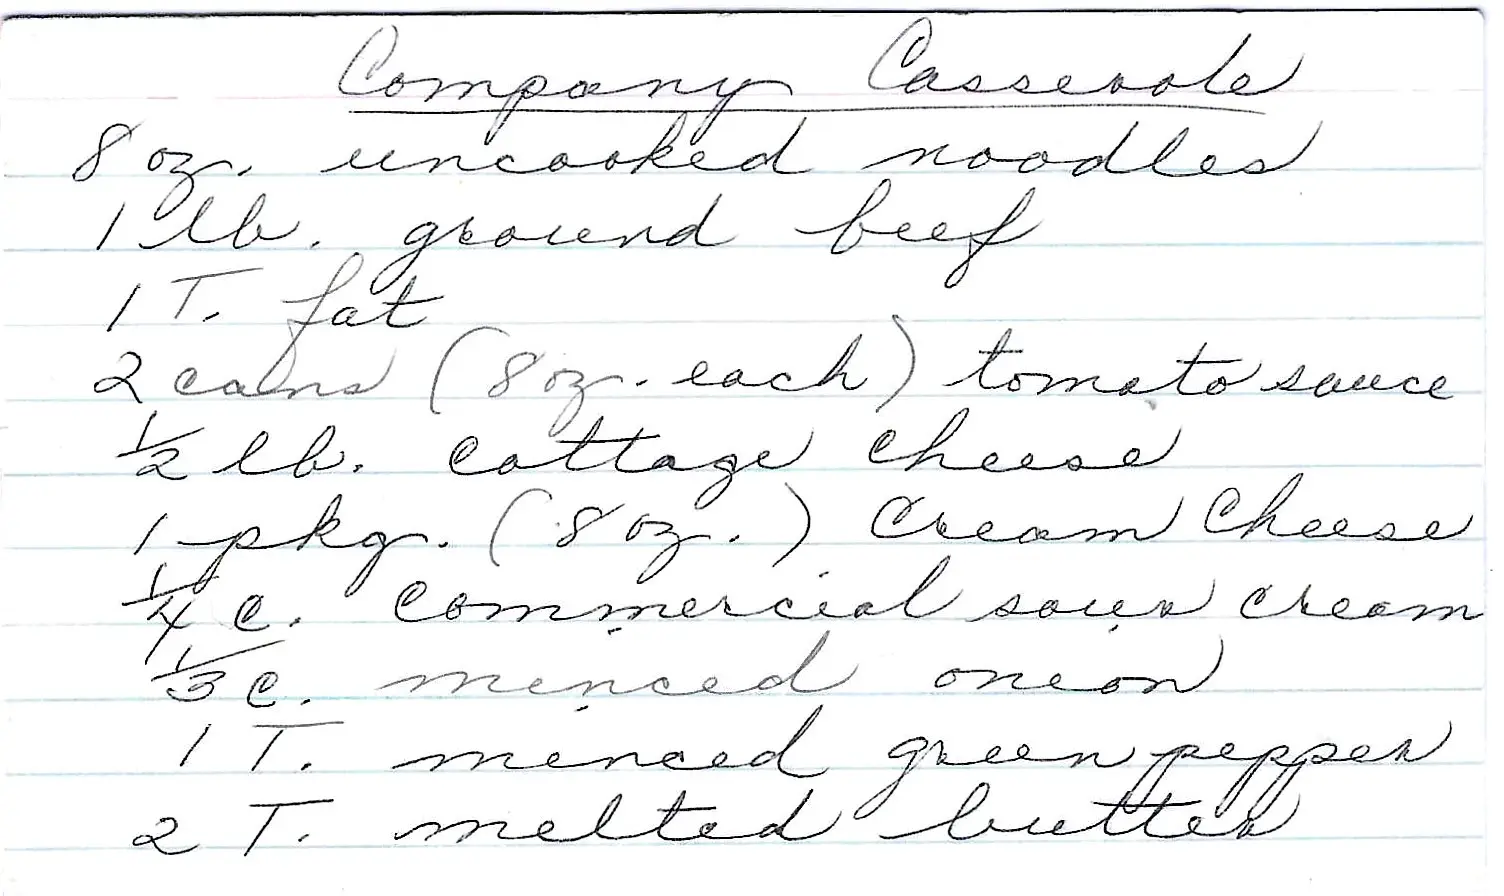 Company Casserole
8 oz. uncooked noodles
1 lb. ground beef
1 T. fat
2 cans (8 oz. each) tomato sauce
1/2 lb. cottage cheese
1 pkg. (8 oz.) Cream Cheese
1/4 c. commercial sour cream
1/3 c. minced onion
1 T. minced green pepper
2 T. melted butter